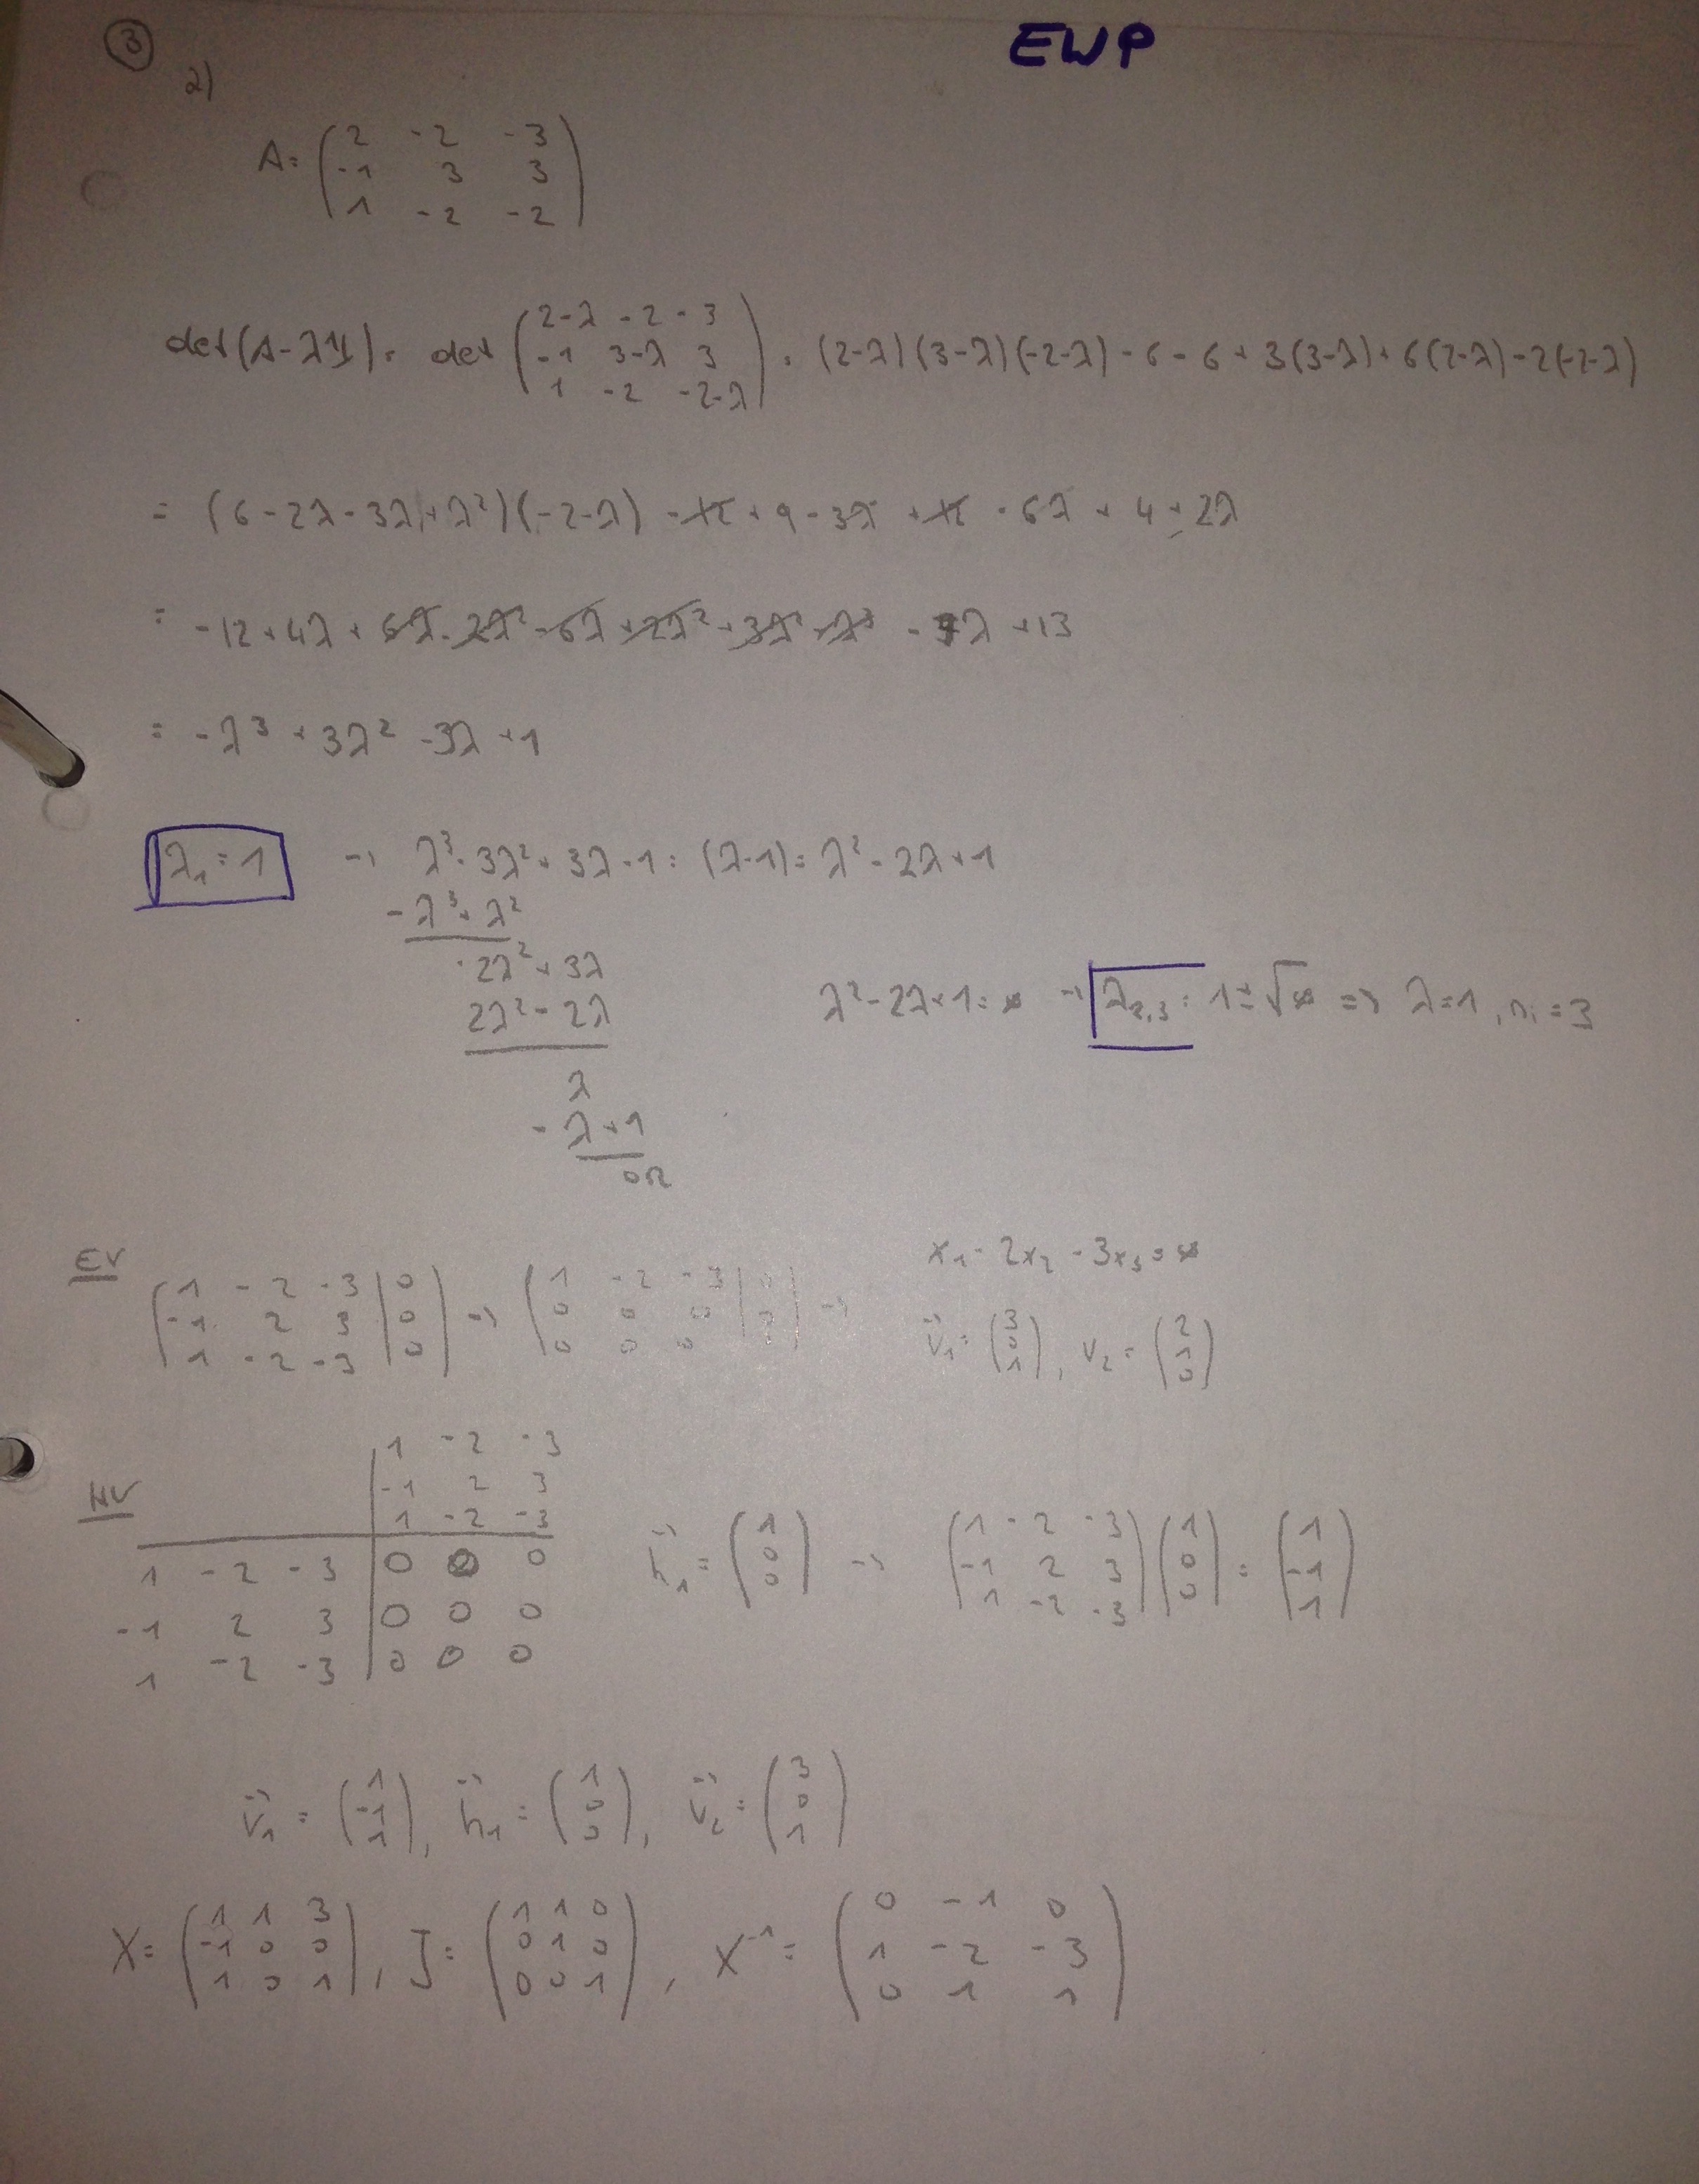 ③ EWP
2)
A = ( 2 -2 -3
-1 3 3
1 -2 -2 )
det(A-λ1) = det ( 2-λ -2 -3
-1 3-λ 3
1 -2 -2-λ ) = (2-λ)(3-λ)(-2-λ) - 6 - 6 + 3(3-λ) + 6(2-λ) - 2(-2-λ)
= (6-2λ-3λ+λ²)(-2-λ) - 12 + 9 - 3λ + 12 - 6λ + 4 + 2λ
= -12 + 4λ + 6λ - 2λ² - 6λ + 2λ² + 3λ² - λ³ - 7λ + 13
= -λ³ + 3λ² - 3λ + 1
λ₁ = 1 → λ³ - 3λ² + 3λ - 1 : (λ-1) = λ² - 2λ + 1
-λ³ + λ²
-2λ² + 3λ
2λ² - 2λ
λ² - 2λ + 1 = 0 → λ₂,₃ = 1 ± √0 => λ = 1, nᵢ = 3
λ
-λ + 1
0R
EV ( 1 -2 -3 | 0
-1 2 3 | 0
1 -2 -3 | 0 ) → ( 1 -2 -3 | 0
0 0 0 |
0 0 0 | ) → x₁ - 2x₂ - 3x₃ = 0
v₁ = ( 3 0 1 ), v₂ = ( 2 1 0 )
HV
1 -2 -3
-1 2 3
1 -2 -3
1 -2 -3 | 0 0 0
-1 2 3 | 0 0 0
1 -2 -3 | 0 0 0
h₁ = ( 1 0 0 ) → ( 1 -2 -3
-1 2 3
1 -2 -3 ) ( 1 0 0 ) = ( 1 -1 1 )
v₁ = ( 1 -1 1 ), h₁ = ( 1 0 0 ), v₂ = ( 3 0 1 )
X = ( 1 1 3
-1 0 0
1 0 1 ), J = ( 1 1 0
0 1 0
0 0 1 ), X⁻¹ = ( 0 -1 0
1 -2 -3
0 1 1 )